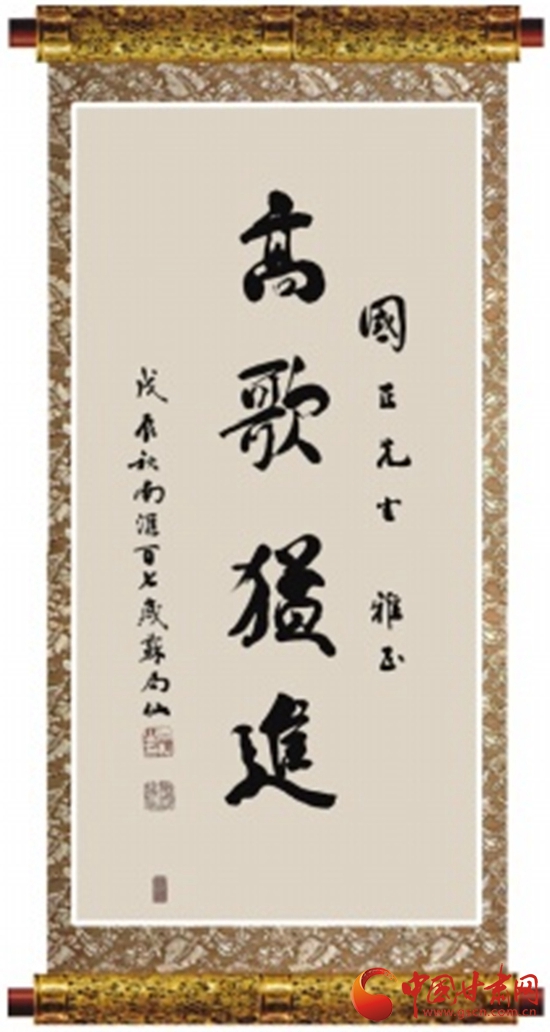 國正先生 雅正
高歌猛進
戊辰秋南滙百七歲蘇局仙
中国甘肃网
www.gscn.com.cn